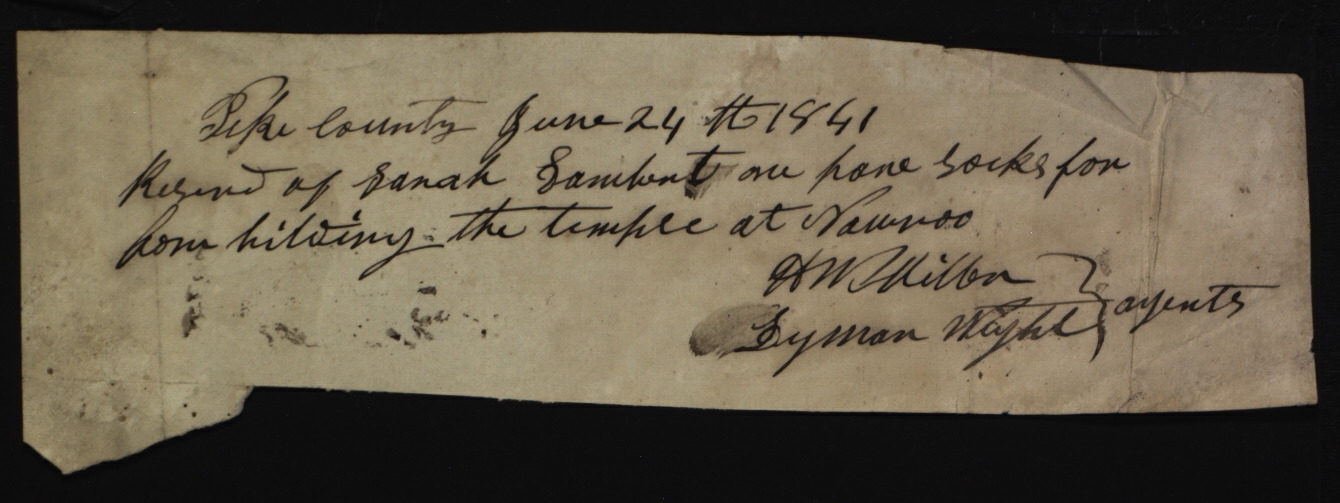 Pike County June 24th 1841
Reservd of Sarah Lambert one pare socks for
for bilding the temple at Nawvoo
H W Miller
Lyman Wight } agents